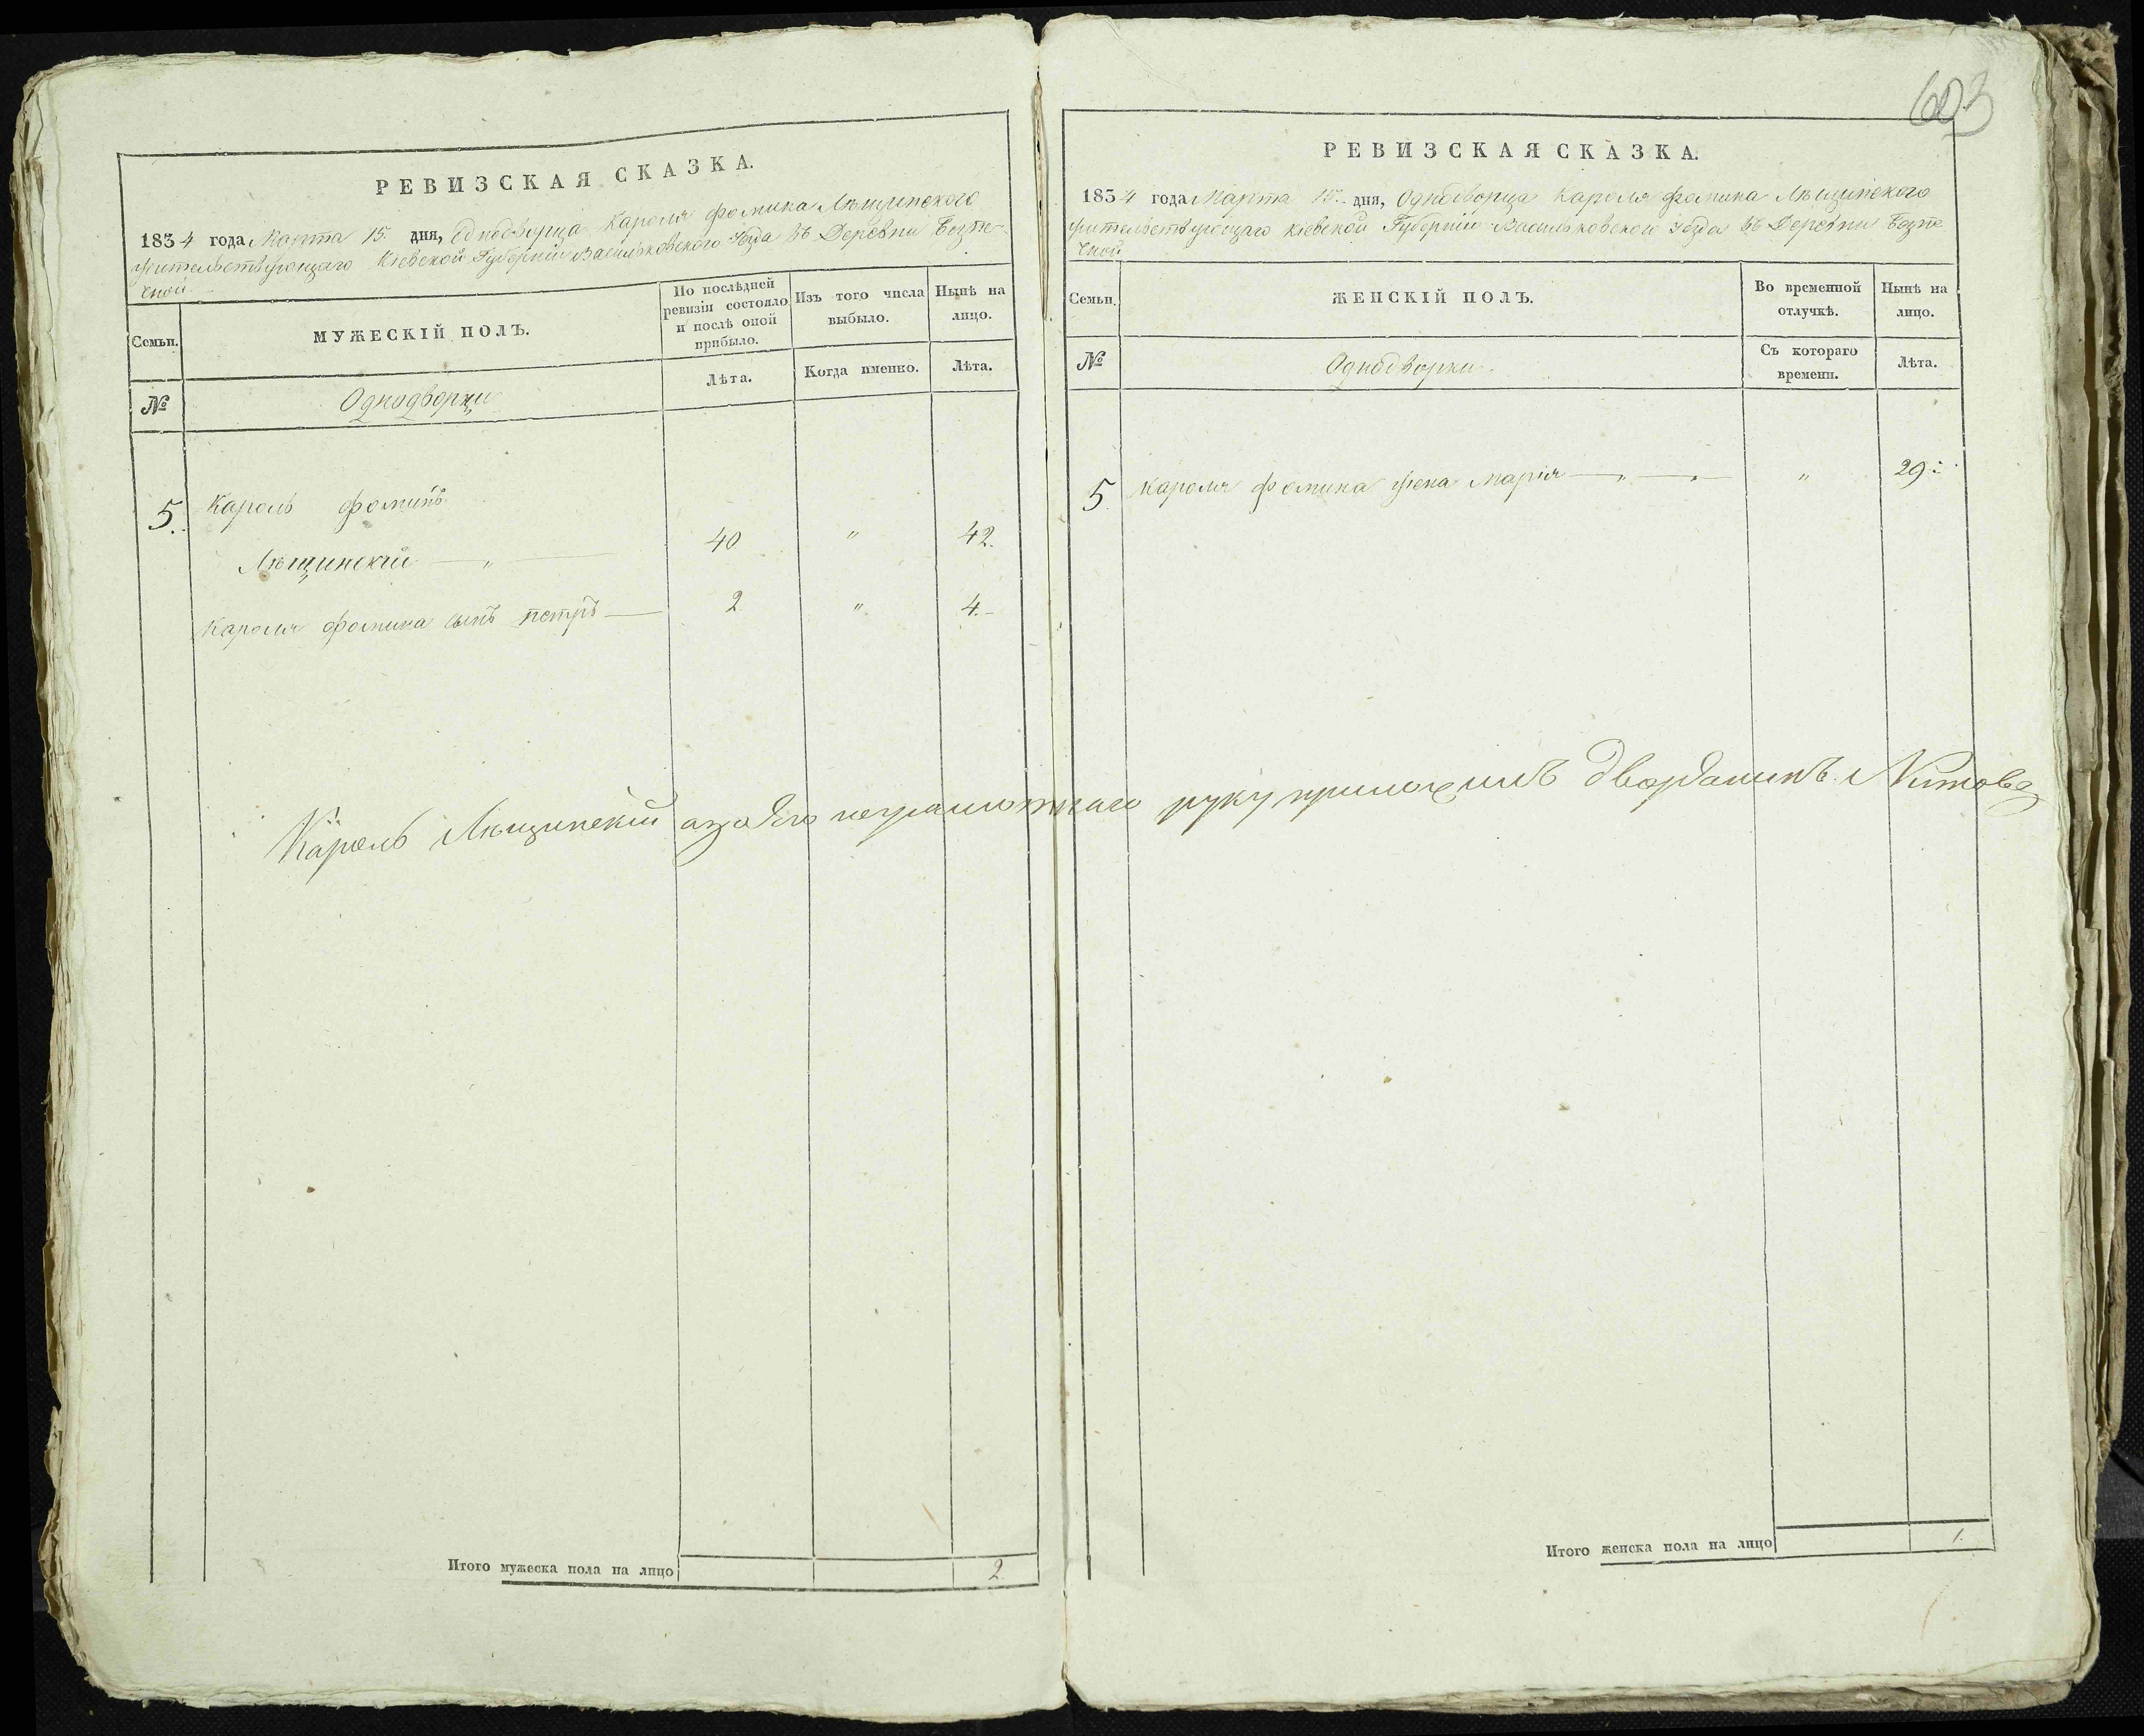 603
РЕВИЗСКАЯ СКАЗКА.
1834 года Марта 15. дня, Однодворца Кароля Фомина Лѣщинского
жительствующаго Кіевской Губерніи Васильковского Уезда въ Деревни Безпе-
чной
Семьи.
МУЖЕСКІЙ ПОЛЪ.
По послѣдней
ревизіи состояло
и послѣ оной
прибыло.
Изъ того числа
выбыло.
Нынѣ на
лицо.
№
Однодворцы
Лѣта.
Когда именно.
Лѣта.
5. Кароль Фоминъ
Лѣщинскій — „ — 40 „ 42.
Кароля Фомина сынъ Петръ — 2 „ 4.-
Кароль Лѣщинскій а за его неграмотнаго руку приложилъ дворянинъ
Итого мужеска пола на лицо 2
РЕВИЗСКАЯ СКАЗКА.
1834 года Марта 15. дня, Однодворца Кароля Фомина Лѣщинского
жительствующаго Кіевской Губерніи Васильковской Уезда въ Деревни Безпе
чной
Семьи.
ЖЕНСКІЙ ПОЛЪ.
Во временной
отлучкѣ.
Нынѣ на
лицо.
№
Однодворки
Съ котораго
времени.
Лѣта.
5. Кароля Фомина жена Марія — „ — „ — „ 29.
Итого женска пола на лицо 1.